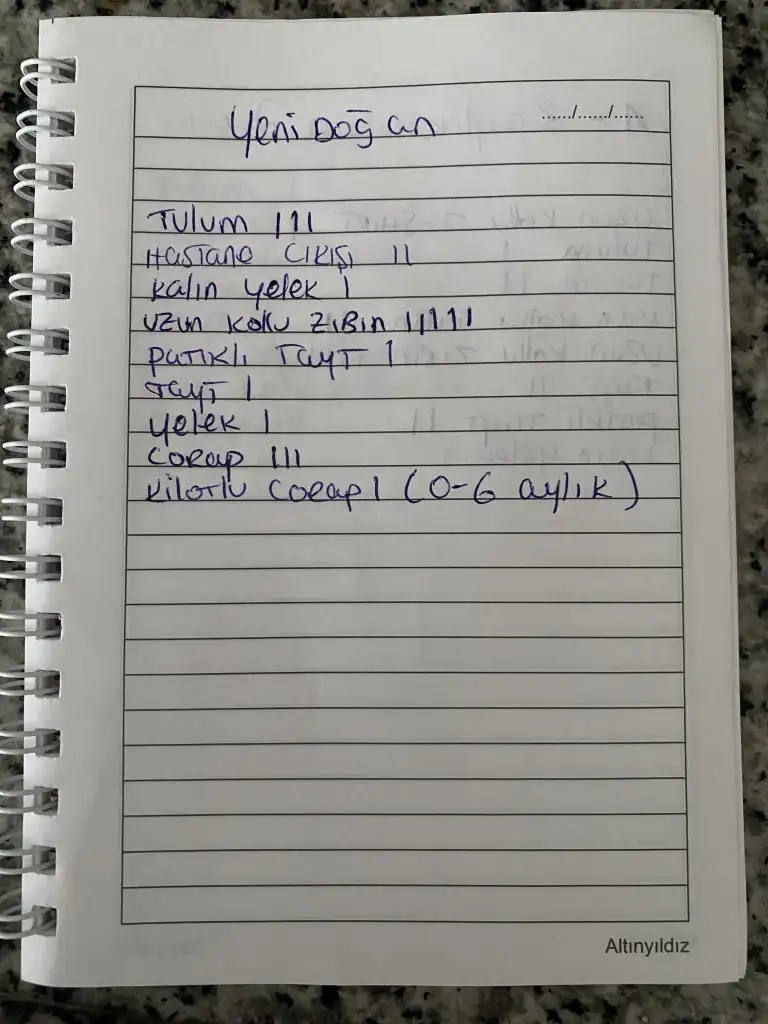 Yeni Doğan
....../....../......
Tulum III
Hastane Çıkışı II
Kalın Yelek I
Uzun Kollu Zıbın IIIII
Patikli Tayt I
Tayt I
Yelek I
Corap III
Kilotlu Corap I (0-6 aylık)
Altınyıldız